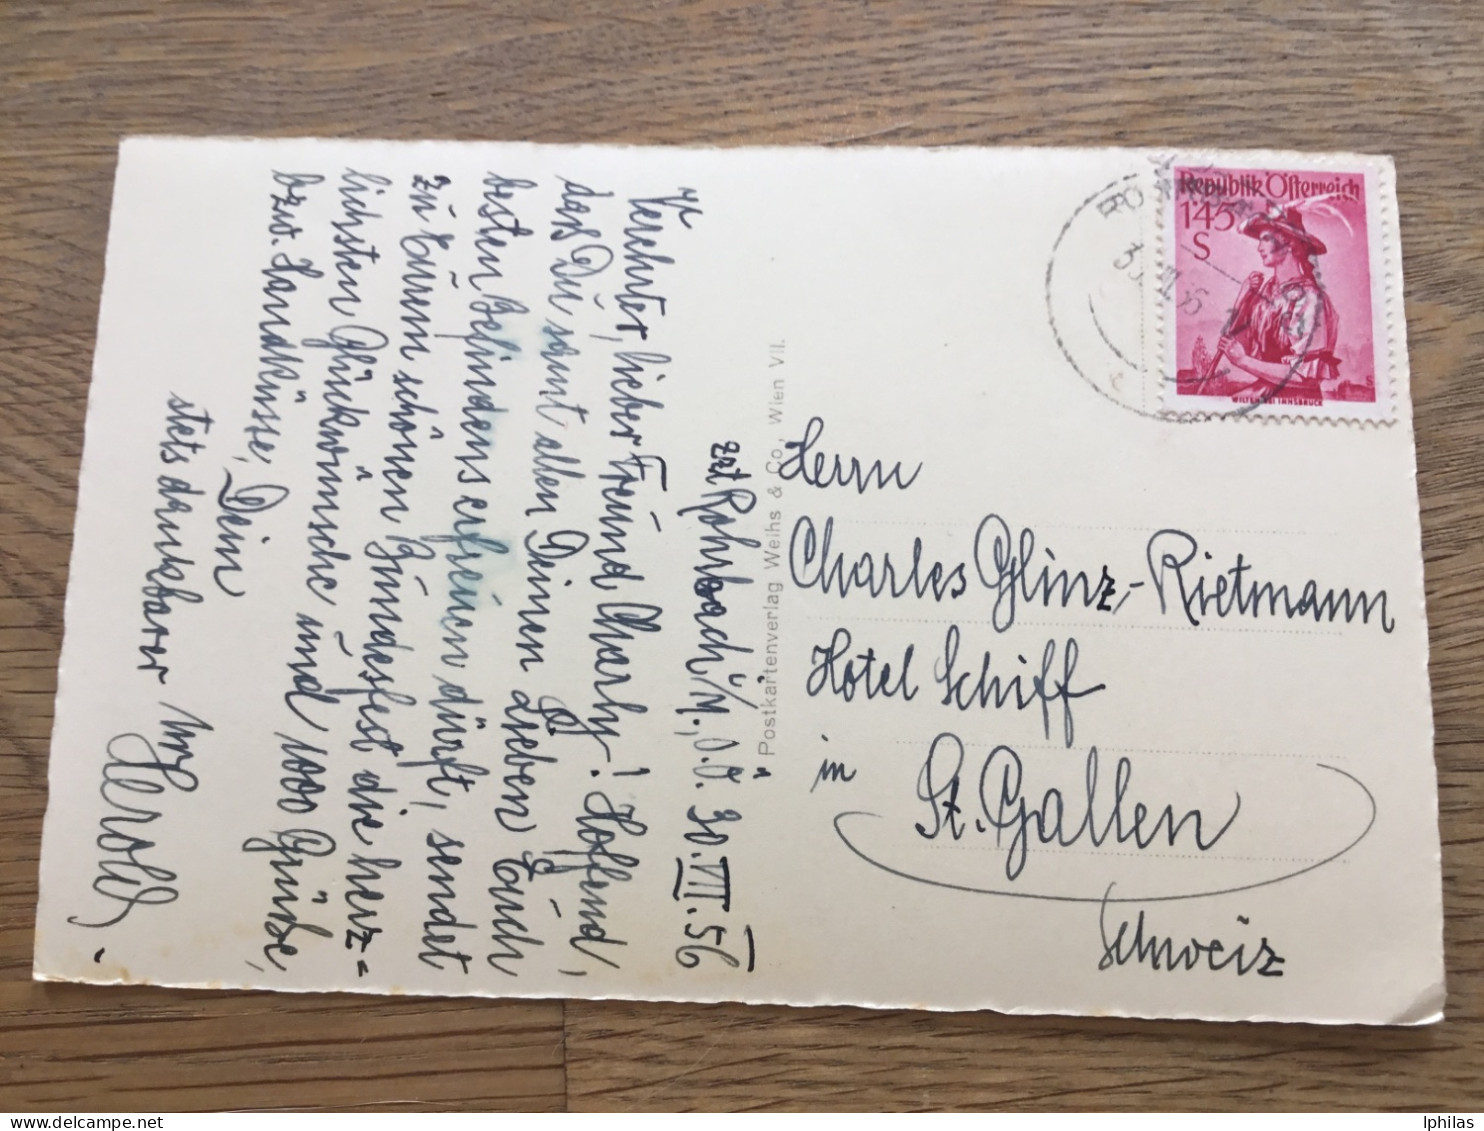 zzt Rohrbach i/M., O.Ö. 30.VII.56
Verehrter, lieber Freund Charly! Hoffend,
dass Du samt allen Deinen Lieben Euch
besten Befindens erfreuen dürft, sendet
zu Eurem schönen Bundesfest die herz=
lichsten Glückwünsche und 1000 Grüße,
bzw. Handküsse, Dein
stets dankbarer
Herold.
Postkartenverlag Weihs & Co, Wien VII.
Republik Österreich
1'45
S
WILTEN BEI INNSBRUCK
Herrn
Charles Glinz-Rietmann
Hotel Schiff
in
St. Gallen
Schweiz
lphilas